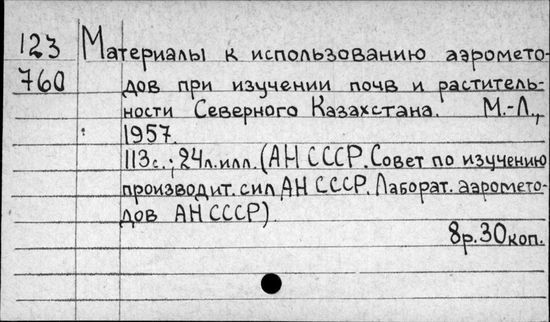 123 Материалы к использованию аэромето-
760 дов при изучении почв и раститель-
ности Северного Казахстана. М.-Л.,
1957.
113с.; 24л.илл. (АН СССР. Совет по изучению
производит. сил АН СССР. Лаборат. аэромето-
дов АН СССР)
8р.30коп.